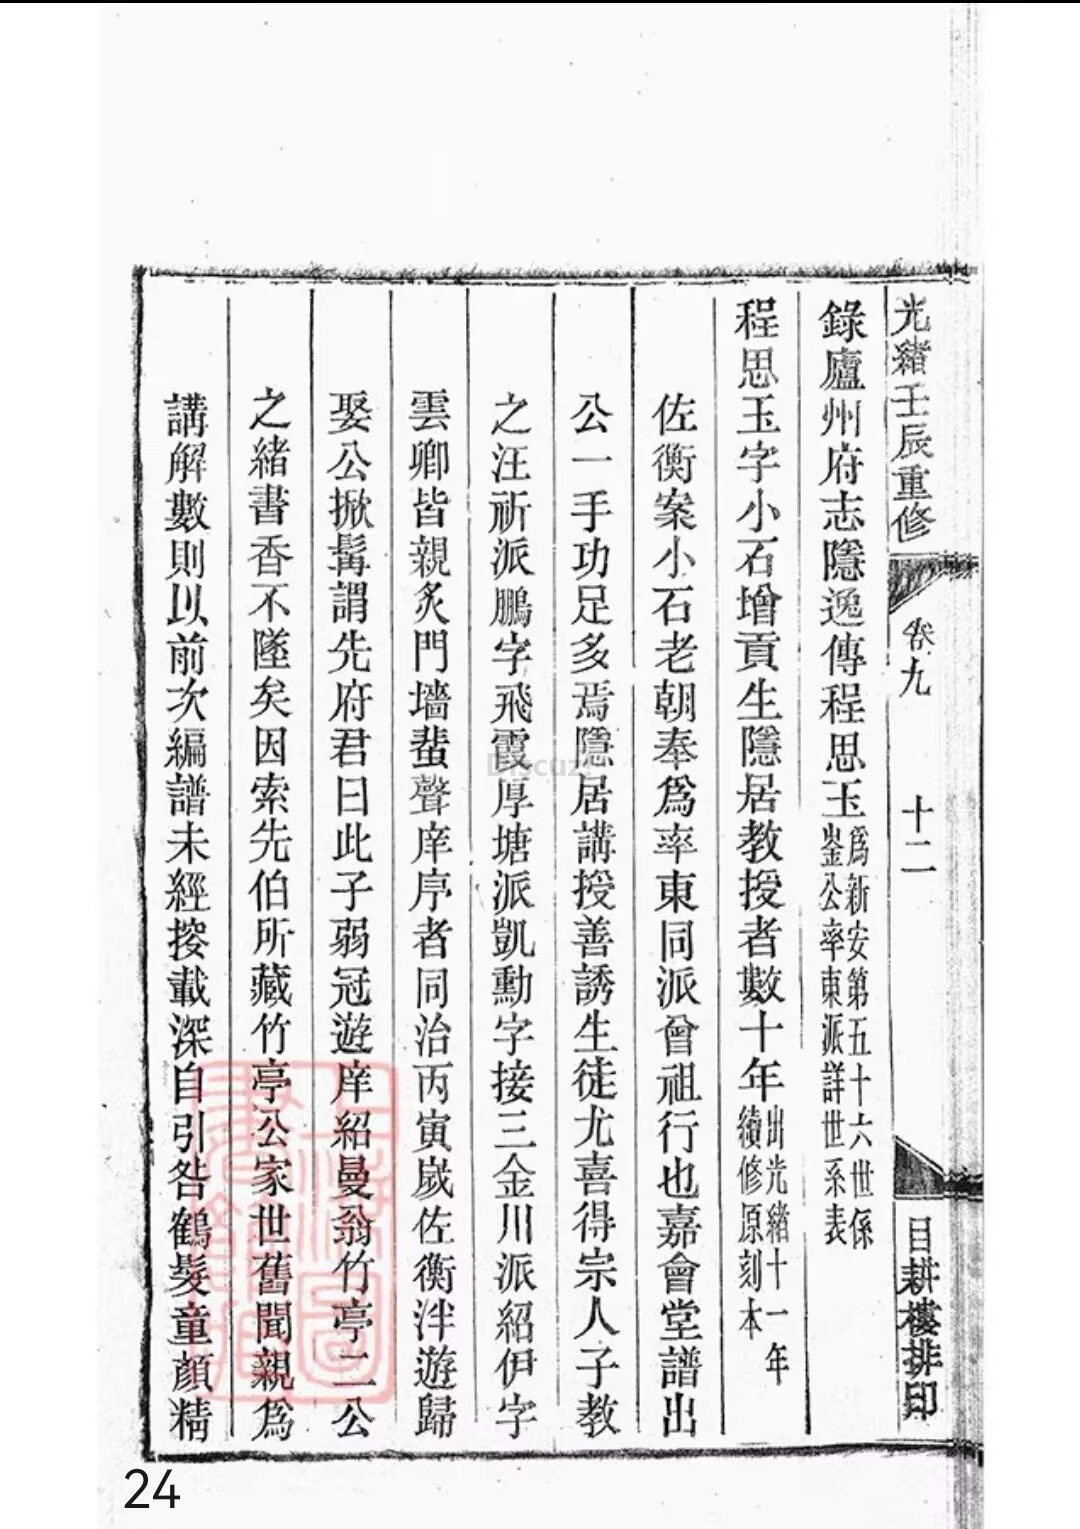 光緒壬辰重修
卷九
十二
目耕樓排印
錄廬州府志隱逸傳程思玉爲新安第五十六世係
崟公率東派詳世系表
程思玉字小石增貢生隱居教授者數十年出光緒十一年
續修原刻本
佐衡案小石老朝奉爲率東同派曾祖行也嘉會堂譜出
公一手功足多焉隱居講授善誘生徒尤喜得宗人子教
之汪祈派鵬字飛霞厚塘派凱勳字接三金川派紹伊字
雲卿皆親炙門墻蜚聲庠序者同治丙寅歲佐衡泮遊歸
娶公掀髯謂先府君曰此子弱冠遊庠紹曼翁竹亭二公
之緒書香不墜矣因索先伯所藏竹亭公家世舊聞親爲
講解數則以前次編譜未經搂載深自引咎鶴髮童顏精
Discuz!
24